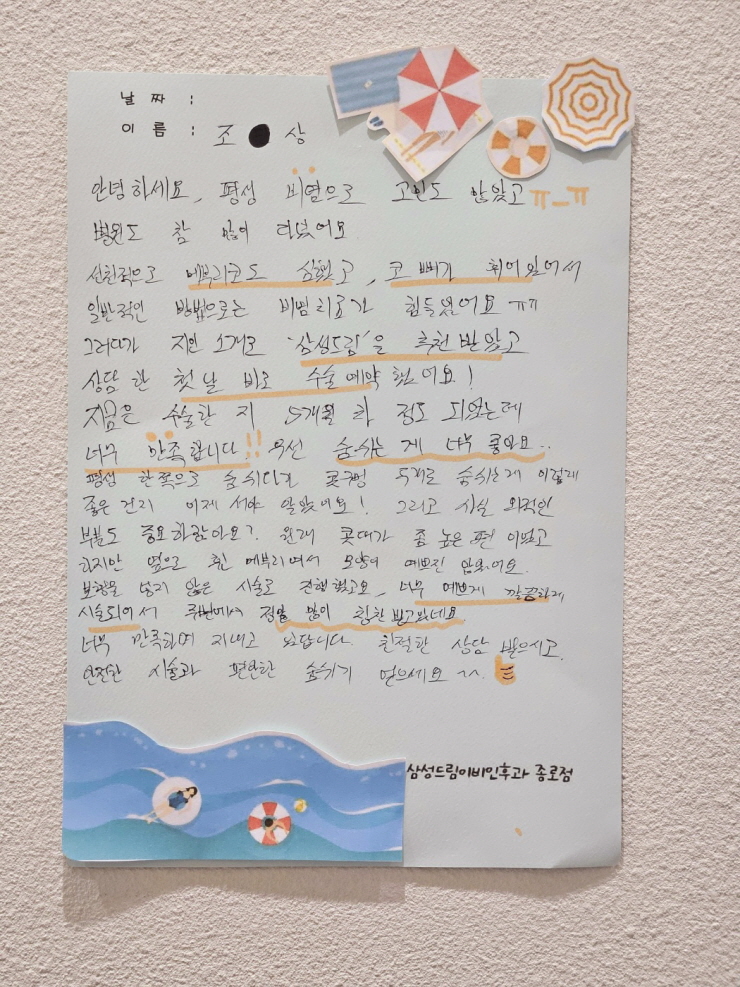 날 짜 :
이 름 : 조 ● 상
안녕하세요, 평생 비염으로 고민도 많았고 ㅠ_ㅠ
병원도 참 많이 다녔어요
선천적으로 매부리코도 심했고, 코 뼈가 휘어있어서
일반적인 방법으로는 비염치료가 힘들었어요 ㅠㅠ
그러다가 지인 소개로 '삼성드림'을 추천 받았고
상담 한 첫 날 바로 수술예약 했어요!
지금은 수술한 지 5개월 차 정도 되었는데
너무 만족합니다!! 우선 숨쉬는 게 너무 좋아요..
평생 한쪽으로 숨쉬다가 콧구멍 두개로 숨쉬는게 이렇게
좋은 건지 이제 서야 알았네요! 그리고 사실 외적인
부분도 중요하잖아요? 원래 콧대가 좀 높은 편 이었고
하지만 옆으로 휜 매부리여서 모양이 예쁘진 않았어요.
보형물 넣지 않은 시술로 진행했고요, 너무 예쁘게 깔끔하게
시술되어서 주변에서 정말 많이 칭찬 받고있네요.
너무 만족하며 지내고 있답니다. 친절한 상담 받으시고,
안전한 시술과 편안한 숨쉬기 얻으세요 ^^.
삼성드림이비인후과 종로점